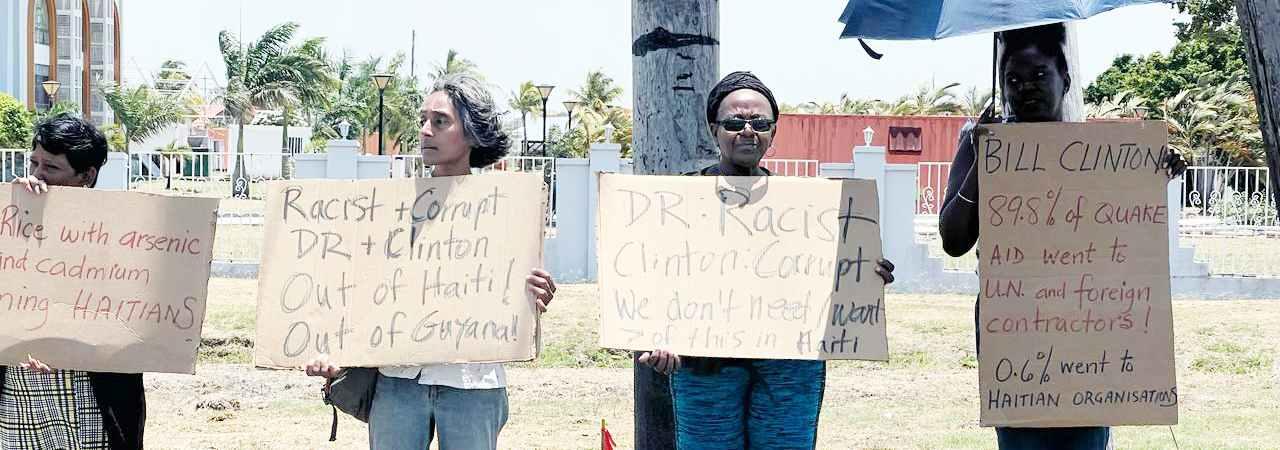 Rice with arsenic
and cadmium
ning HAITIANS
Racist + Corrupt
DR + Clinton
Out of Haiti!
Out of Guyana!!
DR: Racist
Clinton: Corrupt
We don't need / want
> of this in Haiti
BILL CLINTON
89.8% of QUAKE
AID went to
U.N. and foreign
contractors!
0.6% went to
HAITIAN ORGANISATIONS